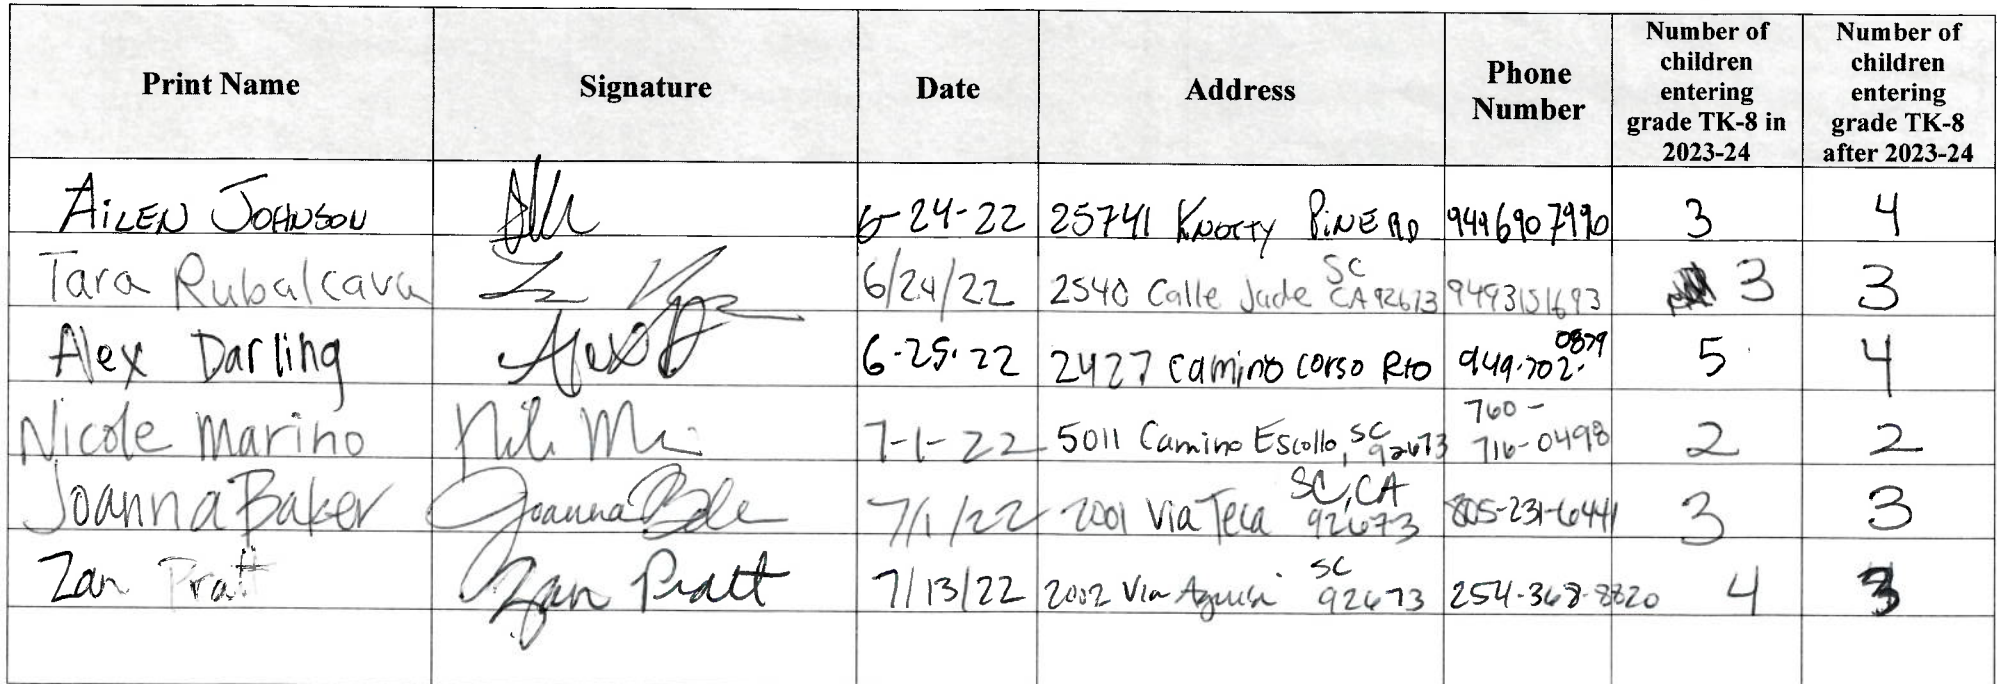 Print Name Signature Date Address Phone Number Number of children entering grade TK-8 in 2023-24 Number of children entering grade TK-8 after 2023-24
AILEN JOHNSON 6-24-22 25741 KNOTTY PINE RD 9496907990 3 4
Tara Rubalcava 6/24/22 2540 Calle Jade SC CA 92673 9493151693 3 3
Alex Darling Alex D 6-25-22 2427 Camino Corso Rio 949-702-0879 5 4
Nicole Marino 7-1-22 5011 Camino Escollo, SC 92673 760-716-0498 2 2
Joanna Baker Joanna 7/1/22 2001 Via Teca SC, CA 92673 805-231-6441 3 3
Zan Pratt Zan Pratt 7/13/22 2002 Via SC 92673 254-368-8820 4 3